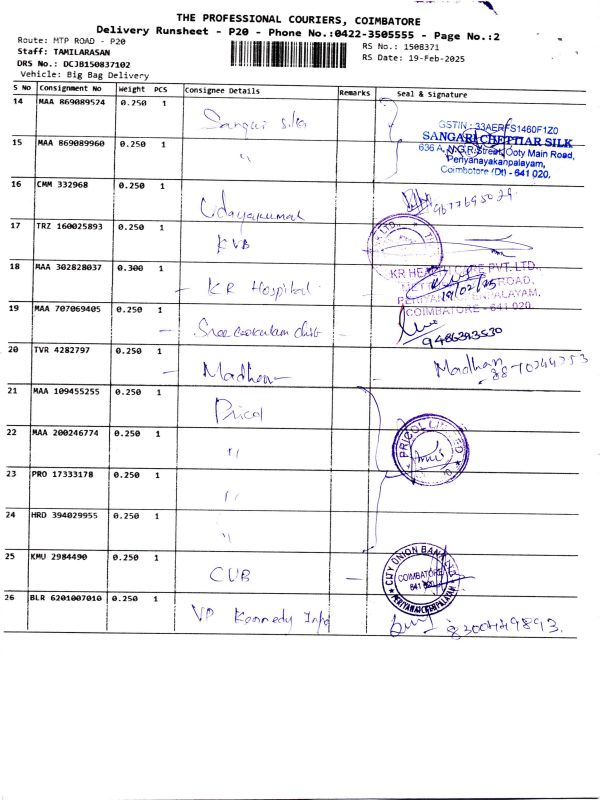 THE PROFESSIONAL COURIERS, COIMBATORE
Delivery Runsheet - P20 - Phone No.:0422-3505555 - Page No.:2
Route: MTP ROAD - P20
RS No.: 1508371
Staff: TAMILARASAN
RS Date: 19-Feb-2025
DRS No.: DCJB150837102
Vehicle: Big Bag Delivery
S No Consignment No Weight PCS Consignee Details Remarks Seal & Signature
14 MAA 869089524 0.250 1 Sangari silks
GSTIN : 33AERFS1460F1Z0
SANGARI CHETTIAR SILK
636 A, N.G.R.Street, Ooty Main Road,
Periyanayakanpalayam,
Coimbatore (Dt) - 641 020.
15 MAA 869089960 0.250 1 "
16 CMM 332968 0.250 1 Udayakumar
17 TRZ 160025893 0.250 1 KVB
18 MAA 302828037 0.300 1 - KR Hospital
KR HEALTH CARE PVT. LTD.,
ROAD,
COIMBATORE - 641 020.
19/02/25
19 MAA 707069405 0.250 1 - Sree
9486393530
20 TVR 4282797 0.250 1 - Madhan - Madhan
21 MAA 109455255 0.250 1 Pricol
PRICOL LIMITED
22 MAA 200246774 0.250 1 "
23 PRO 17333178 0.250 1 "
24 HRD 394029955 0.250 1 "
25 KMU 2984490 0.250 1 CUB -
CITY UNION BANK LTD
COIMBATORE
641 020
PERIYANAICKENPALAYAM
26 BLR 6201007010 0.250 1 VP Kennedy Info